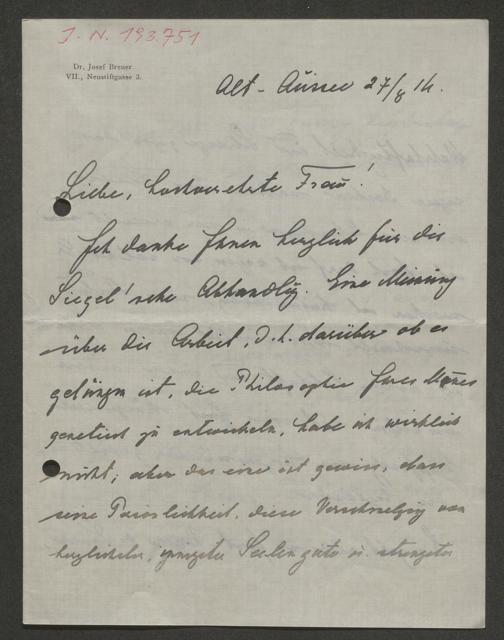 J. N. 193.751
Dr. Josef Breuer
VII., Neustiftgasse 3.
Alt-Aussee 27/8 14.
Liebe, hochverehrte Frau!
Ich danke Ihnen herzlich für die
Siegel'sche Abhandlg. Eine Meinung
über die Arbeit, d.h. darüber ob es
gelungen ist, die Philosophie Ihres Mannes
genetisch zu entwickeln, habe ich wirklich
nicht; aber das eine ist gewiss, dass
seine Persönlichkeit, diese Verschmelzg von
herzlichster, Seelengüte u. strengster